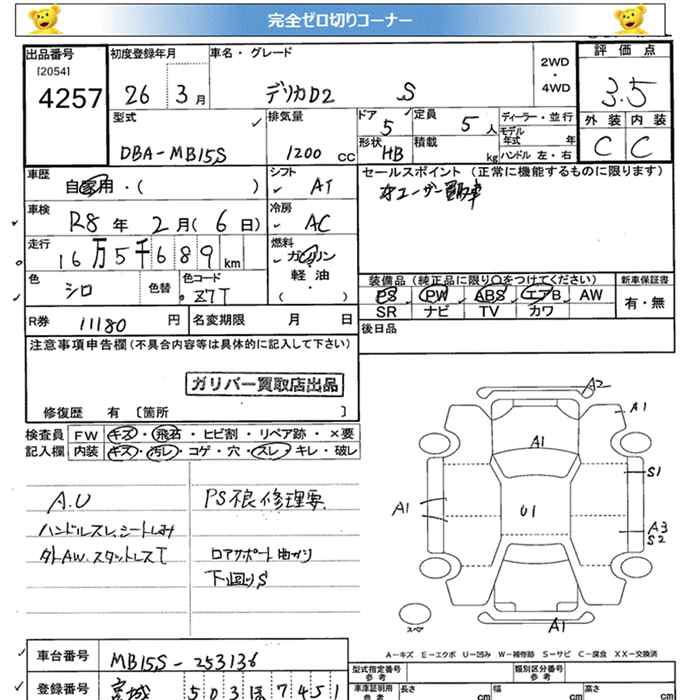 完全ゼロ切りコーナー
出品番号
[2054]
4257
初度登録年月
26 3月
車名・グレード
デリカD2 S
2WD
・
4WD
評価点
3.5
外装 内装
C C
型式
DBA-MB15S
排気量
1200 CC
ドア
5
形状
HB
定員
5 人
積載
kg
ディーラー・並行
モデル
年式 年
ハンドル 左・右
車歴
自家用・( )
シフト
AT
車検
R8年 2月(6日)
冷房
AC
走行
16万5千689km
燃料
ガソリン
軽・油
( )
色
シロ
色替
色コード
Z7T
R券 11180 円
名変期限 月 日
セールスポイント (正常に機能するものに限ります)
装備品 (純正品に限り○をつけてください)
PS PW ABS エアB AW
SR ナビ TV カワ
新車保証書
有・無
後日品
注意事項申告欄(不具合内容等は具体的に記入して下さい)
ガリバー買取店出品
修復歴 有 [箇所 ]
検査員
記入欄
FW キズ・飛石・ヒビ割・リペア跡・×要
内装 キズ・汚レ・コゲ・穴・スレ・キレ・破レ
A.U
ハンドルスレ、シートしみ
タトAW、スタットレスT
PS不良修理要
ロアサポート曲がり
下回りS
A2
A1
A1
S1
A1
U1
A3
S2
A1
スペア
A-キズ E-エクボ U-凹み W-補修跡 S-サビ C-腐食 XX-交換済
車台番号
MB15S-253136
登録番号
宮城 503 ほ 7451
型式指定番号
参考
類別区分番号
参考
車庫証明用
参考
長さ cm
幅 cm
高さ cm